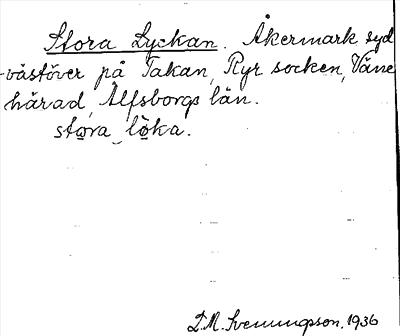 Stora Lyckan. Åkermark syd
-västöver på Takan, Ryr socken, Väne
härad, Älfsborgs län.
stora löka.
D.M. Svenungson. 1936